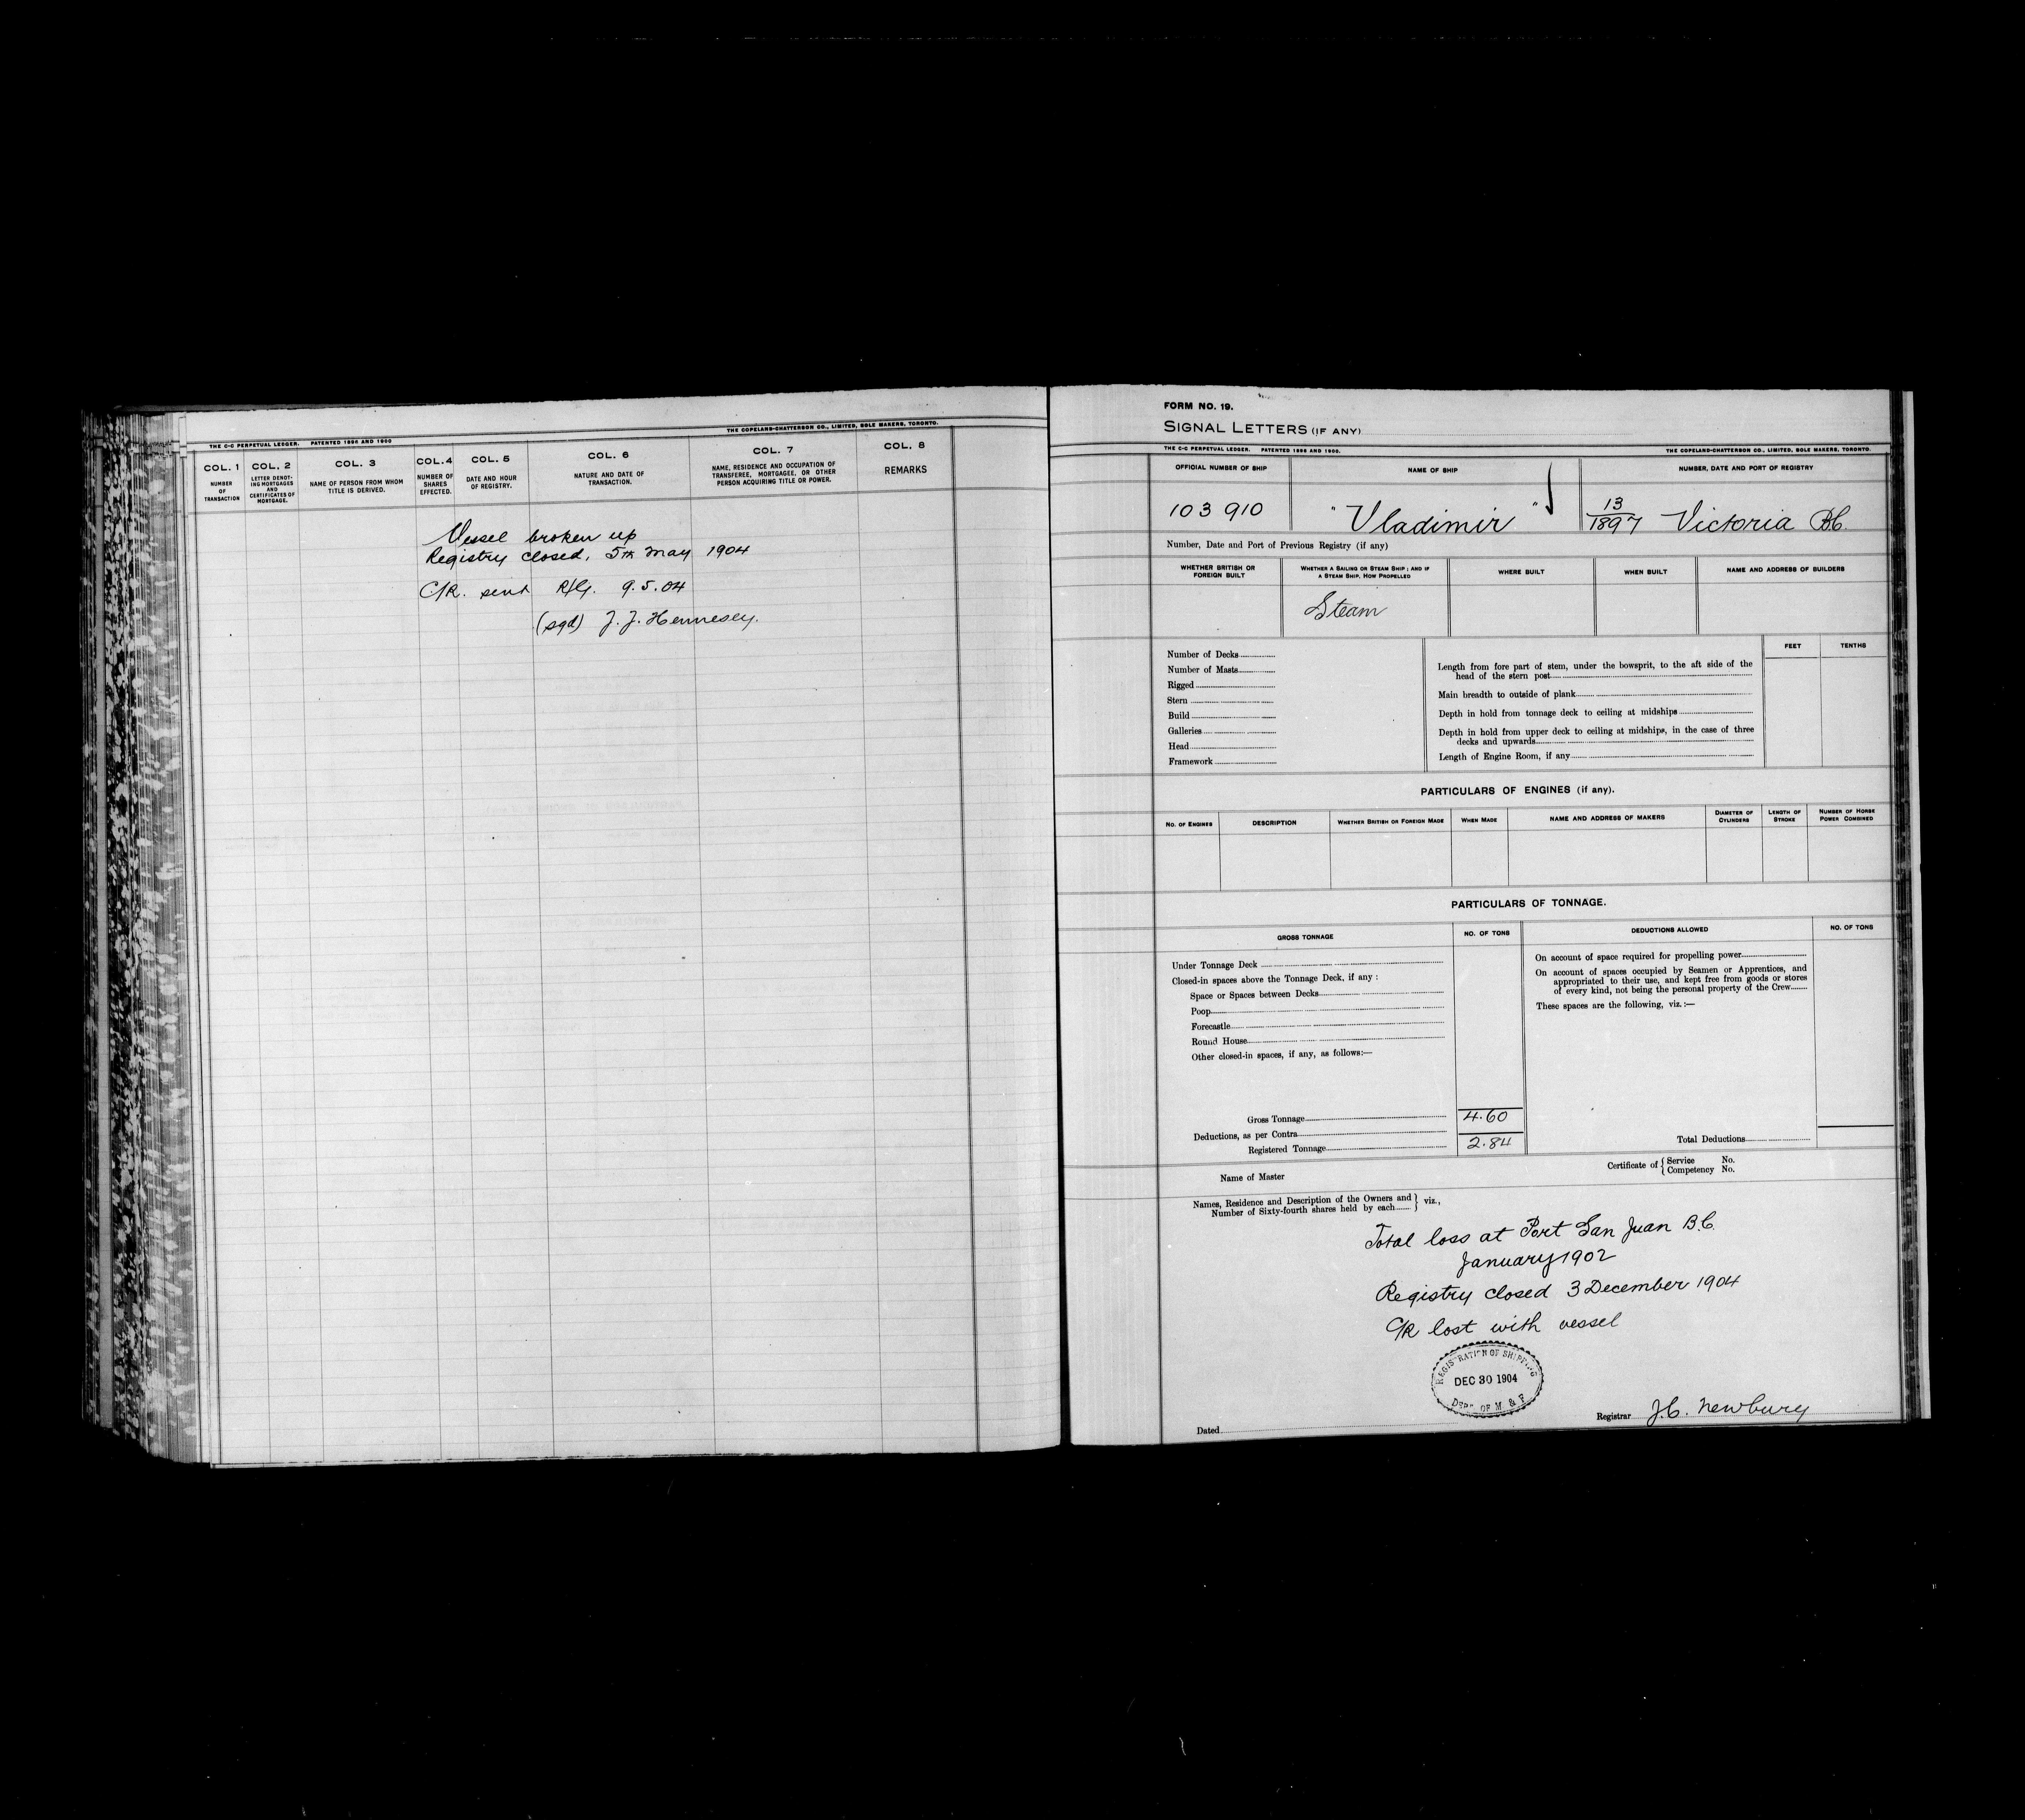 THE C-C PERPETUAL LEDGER. PATENTED 1896 AND 1900
THE COPELAND-CHATTERSON CO., LIMITED, SOLE MAKERS, TORONTO.
COL. 1 NUMBER OF TRANSACTION
COL. 2 LETTER DENOTING MORTGAGES AND CERTIFICATES OF MORTGAGE.
COL. 3 NAME OF PERSON FROM WHOM TITLE IS DERIVED.
COL. 4 NUMBER OF SHARES EFFECTED.
COL. 5 DATE AND HOUR OF REGISTRY.
COL. 6 NATURE AND DATE OF TRANSACTION.
COL. 7 NAME, RESIDENCE AND OCCUPATION OF TRANSFEREE, MORTGAGEE, OR OTHER PERSON ACQUIRING TITLE OR POWER.
COL. 8 REMARKS
Vessel broken up
Registry closed, 5th May 1904
C/R. sent R/G. 9.5.04
(sgd) J. J. Hennesey.
FORM NO. 19.
SIGNAL LETTERS (IF ANY)
THE C-C PERPETUAL LEDGER. PATENTED 1896 AND 1900.
THE COPELAND-CHATTERSON CO., LIMITED, SOLE MAKERS, TORONTO.
OFFICIAL NUMBER OF SHIP
NAME OF SHIP
NUMBER, DATE AND PORT OF REGISTRY
103 910
"Vladimir"
13/1897 Victoria B.C.
Number, Date and Port of Previous Registry (if any)
WHETHER BRITISH OR FOREIGN BUILT
WHETHER A SAILING OR STEAM SHIP; AND IF A STEAM SHIP, HOW PROPELLED
WHERE BUILT
WHEN BUILT
NAME AND ADDRESS OF BUILDERS
Steam
FEET
TENTHS
Number of Decks
Number of Masts
Rigged
Stern
Build
Galleries
Head
Framework
Length from fore part of stem, under the bowsprit, to the aft side of the
head of the stern post
Main breadth to outside of plank
Depth in hold from tonnage deck to ceiling at midships
Depth in hold from upper deck to ceiling at midships, in the case of three
decks and upwards
Length of Engine Room, if any
PARTICULARS OF ENGINES (if any).
NO. OF ENGINES
DESCRIPTION
WHETHER BRITISH OR FOREIGN MADE
WHEN MADE
NAME AND ADDRESS OF MAKERS
DIAMETER OF CYLINDERS
LENGTH OF STROKE
NUMBER OF HORSE POWER COMBINED
PARTICULARS OF TONNAGE.
GROSS TONNAGE
NO. OF TONS
DEDUCTIONS ALLOWED
NO. OF TONS
Under Tonnage Deck
Closed-in spaces above the Tonnage Deck, if any :
Space or Spaces between Decks
Poop
Forecastle
Round House
Other closed-in spaces, if any, as follows:—
On account of space required for propelling power
On account of spaces occupied by Seamen or Apprentices, and
appropriated to their use, and kept free from goods or stores
of every kind, not being the personal property of the Crew
These spaces are the following, viz. :—
Gross Tonnage 4.60
Deductions, as per Contra
Registered Tonnage 2.84
Total Deductions
Name of Master
Certificate of { Service No.
Competency No.
Names, Residence and Description of the Owners and
Number of Sixty-fourth shares held by each } viz.,
Total loss at Port San Juan B.C.
January 1902
Registry closed 3 December 1904
C/R lost with vessel
REGISTRATION OF SHIPPING
DEC 30 1904
DEPT. OF M. & F.
Registrar J.C. Newbury
Dated